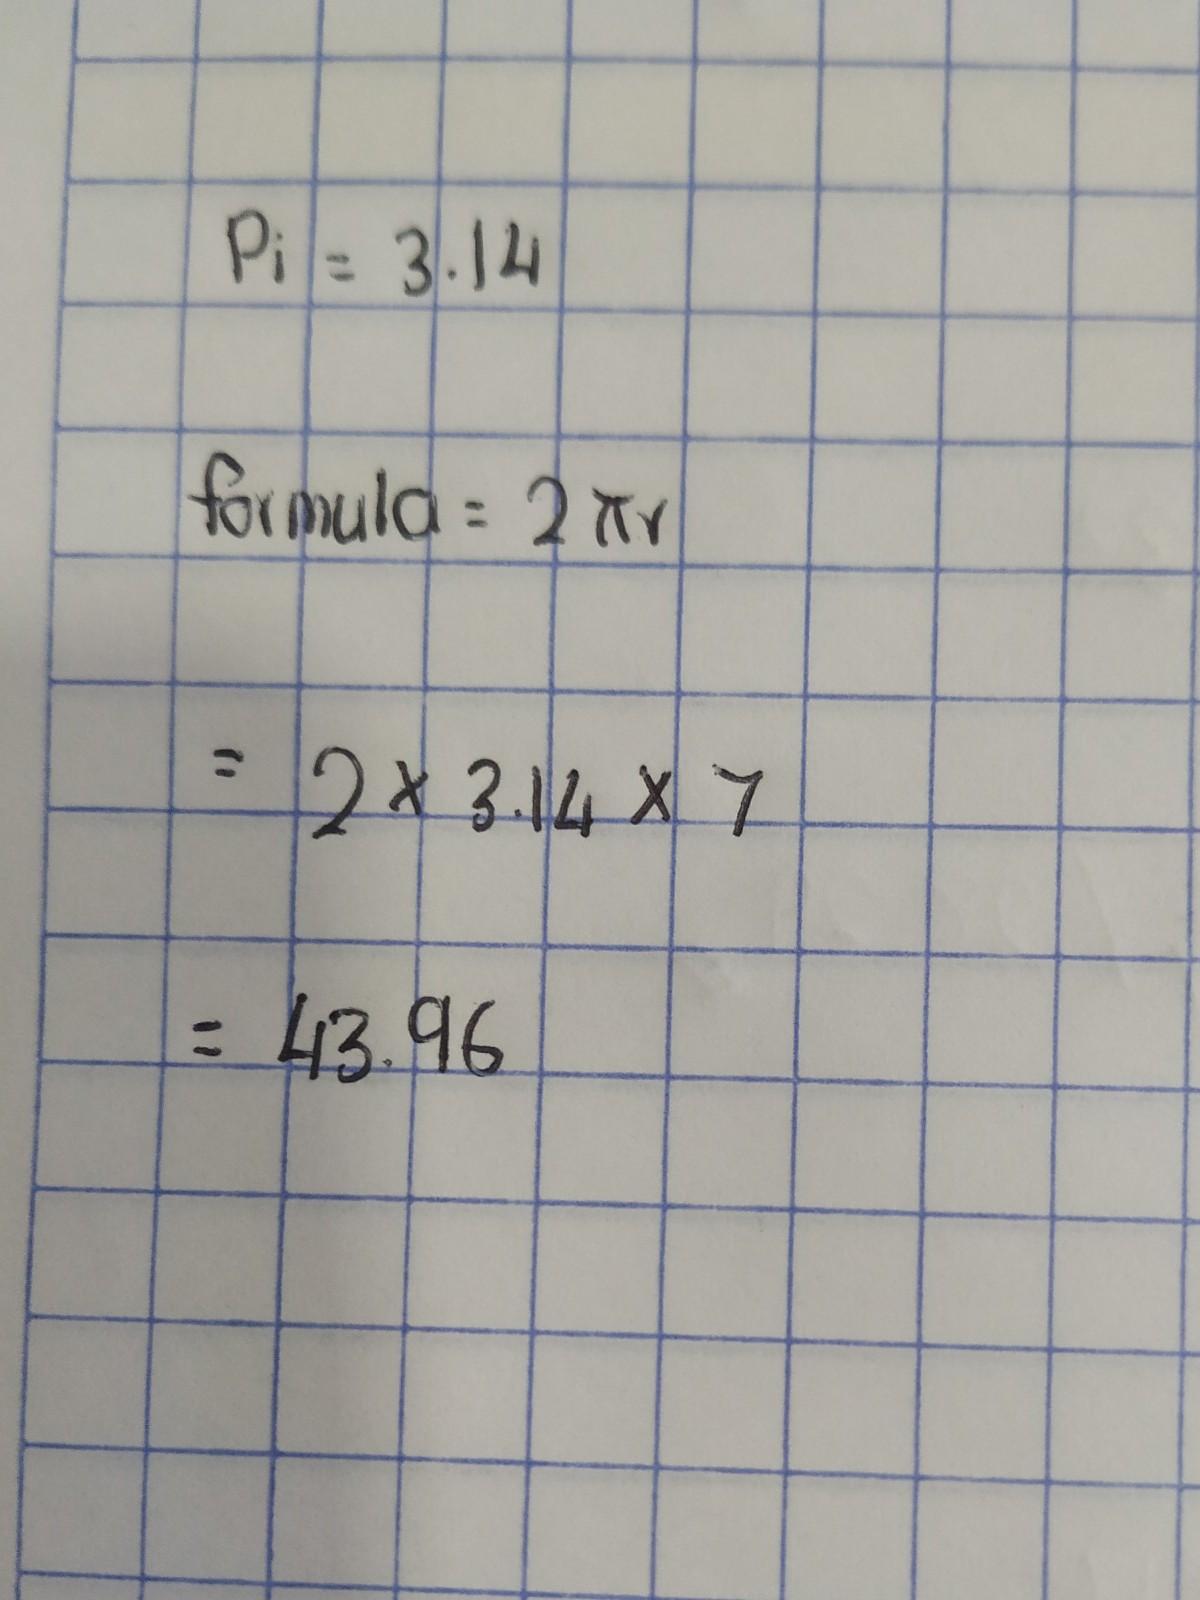 Pi = 3.14
formula = 2πr
= 2 × 3.14 × 7
= 43.96